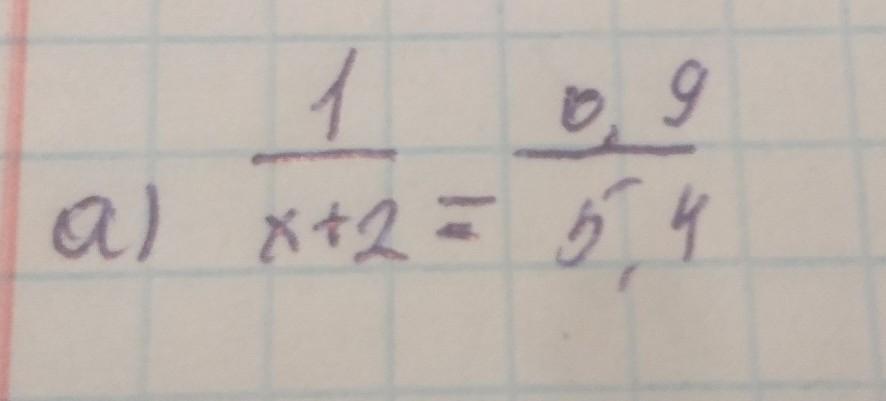 а) 1/(x+2) = 0,9/5,4